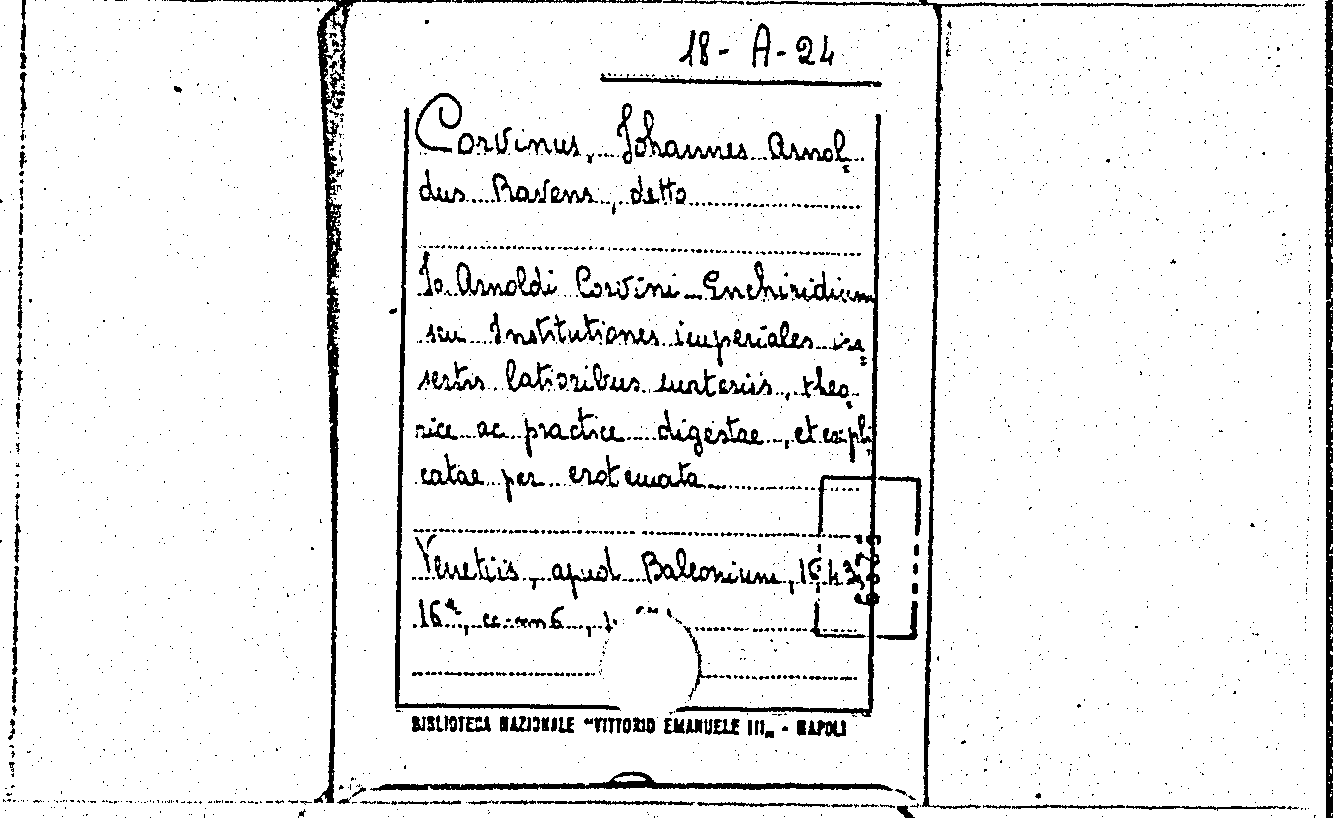 18- A- 24
Corvinus, Johannes Arnol
dus Ravens, detto
Jo Arnoldi Corvini Enchiridium
seu Institutiones imperiales in
sertis latioribus materiis, theo
rice ac practice digestae, et expli
catae per erotemata
Venetiis, apud Baleonium, 1643
16°,
BIBLIOTECA NAZIONALE "VITTORIO EMANUELE III„ - NAPOLI